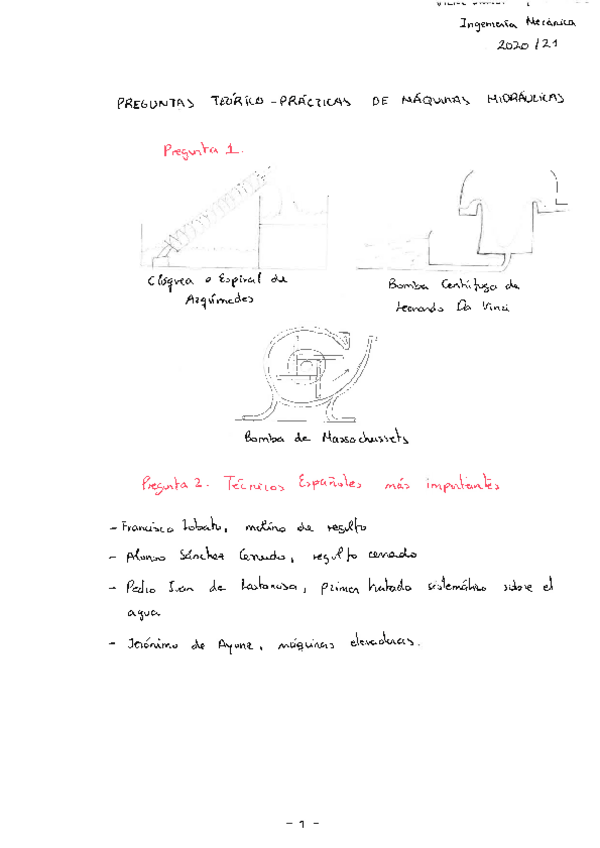 Ingeniería Mecánica
2020/21
PREGUNTAS TEÓRICO-PRÁCTICAS DE MÁQUINAS HIDRÁULICAS
Pregunta 1.
Clóquea o Espiral de
Arquímedes
Bomba Centrífuga de
Leonardo Da Vinci
Bomba de Massachussets
Pregunta 2. Técnicos Españoles más importantes
- Francisco Lobato, molino de regolfo
- Alonso Sánchez Cerrudo, regolfo cerrado
- Pedro Juan de Lastanosa, primer tratado sistemático sobre el
agua
- Jerónimo de Ayanz, máquinas elevadoras.
- 1 -